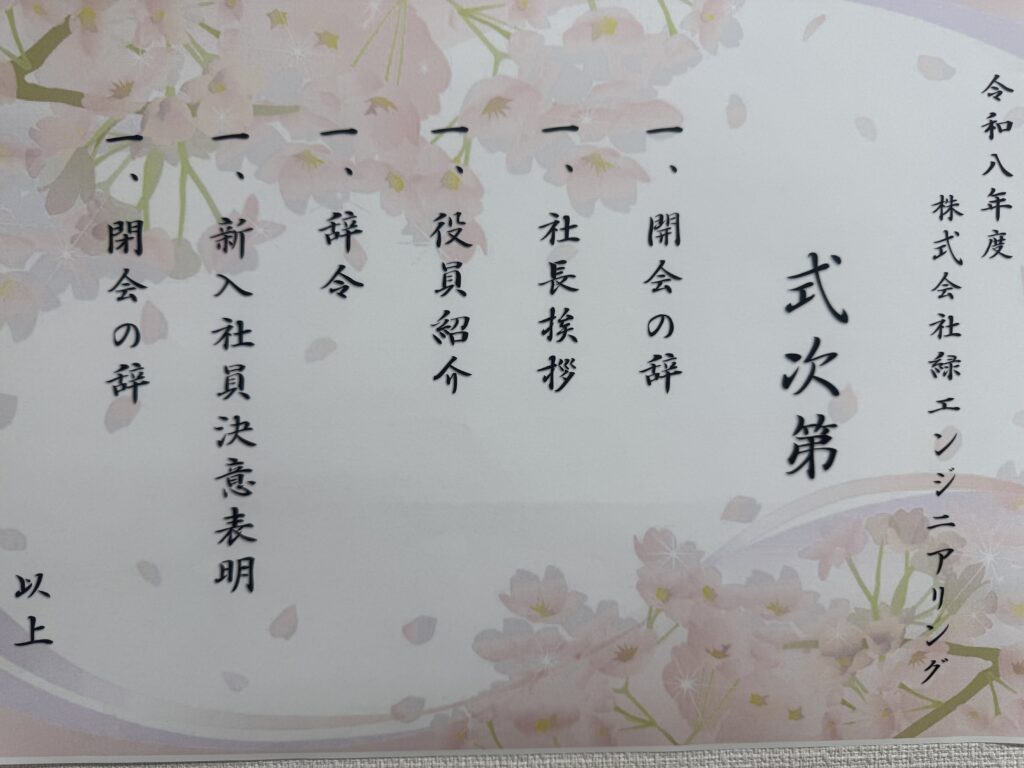 令和八年度
株式会社緑エンジニアリング
式次第
一、開会の辞
一、社長挨拶
一、役員紹介
一、辞令
一、新入社員決意表明
一、閉会の辞
以上